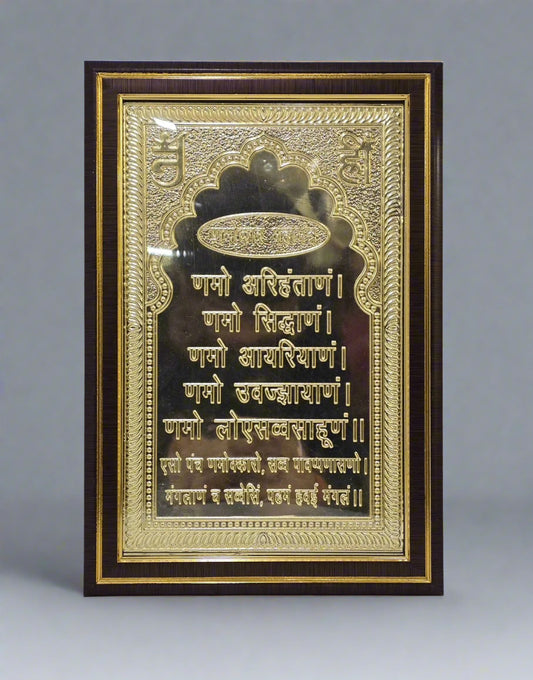 ॐ ह्रीं
णमोकार मंत्र
णमो अरिहंताणं।
णमो सिद्धाणं।
णमो आयरियाणं।
णमो उवज्झायाणं।
णमो लोएसव्वसाहूणं।।
एसो पंच णमोक्कारो, सव्व पावप्पणासणो।
मंगलाणं च सव्वेसिं, पढमं हवई मंगलं।।